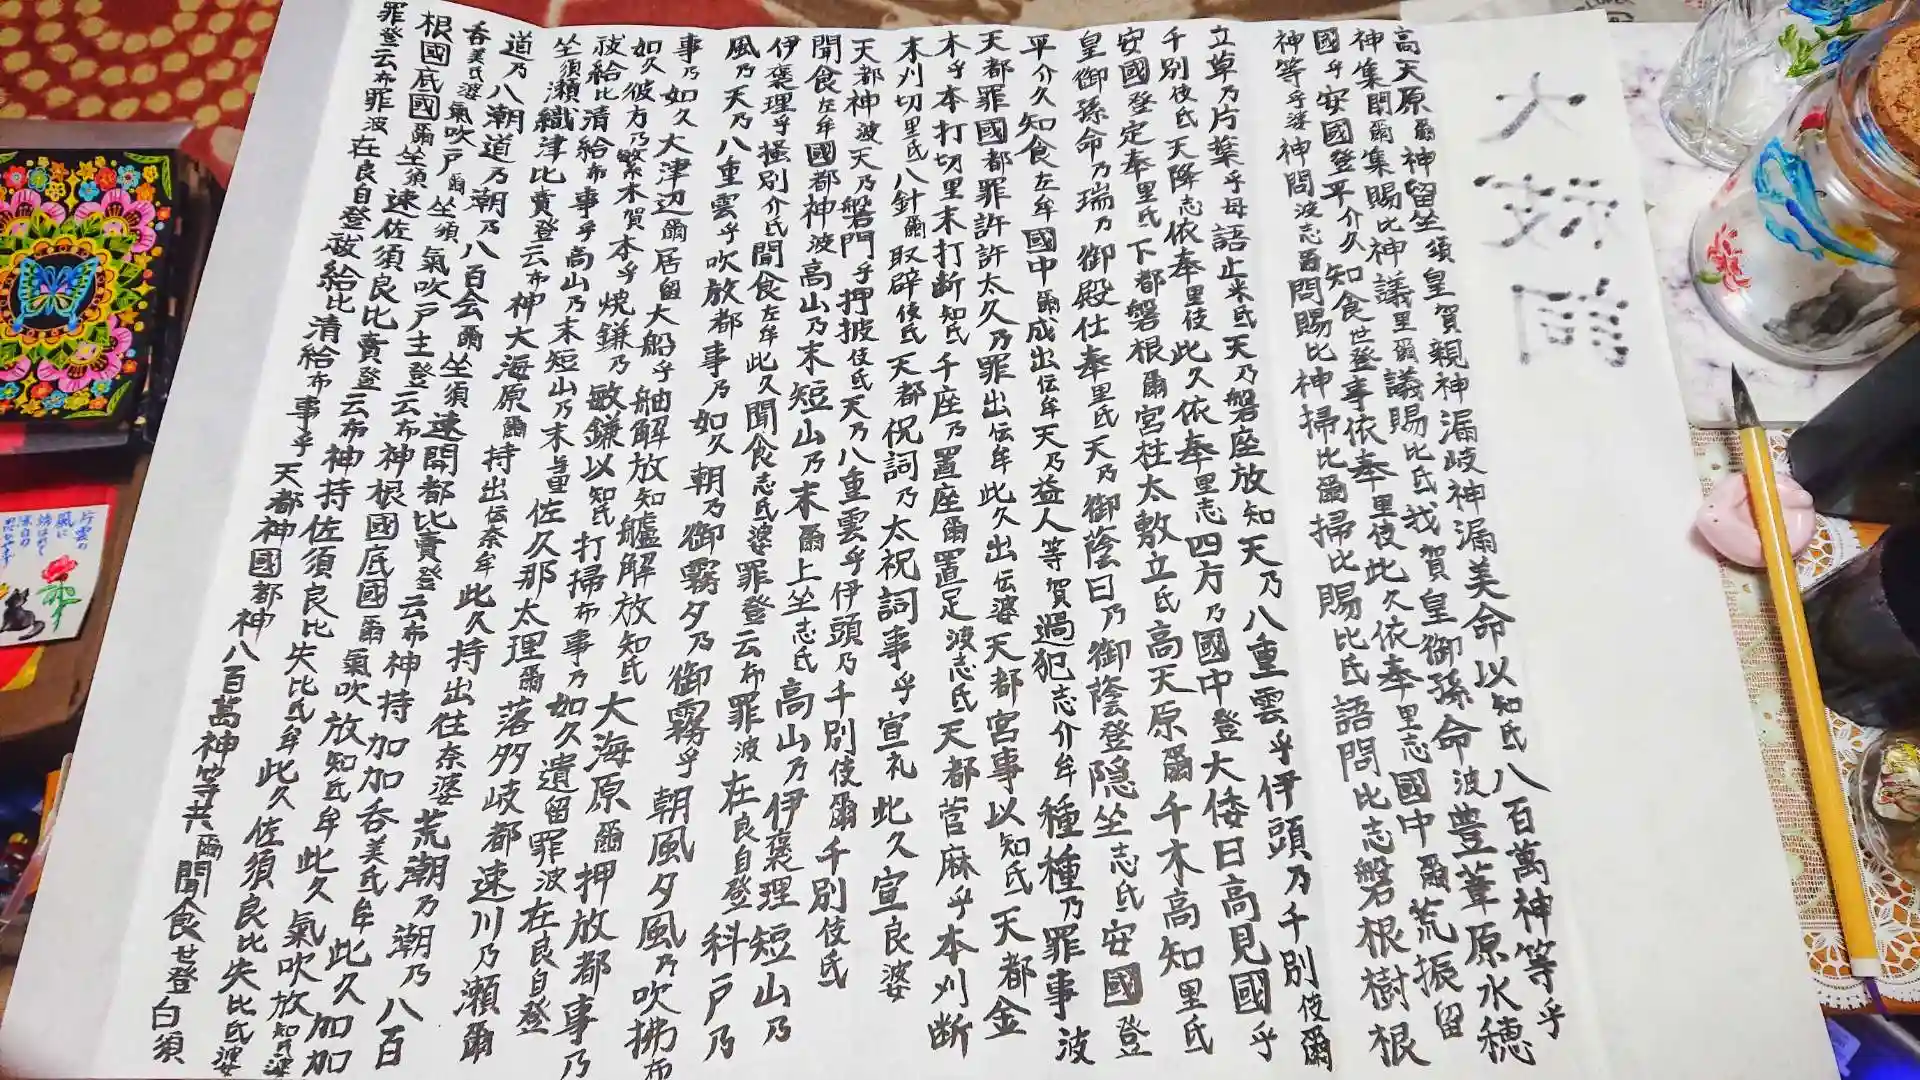 大祓詞
高天原爾神留坐須皇賀親神漏岐神漏美命以知氐八百萬神等乎
神集閇爾集賜比神議里爾議賜比氐我賀皇御孫命波豊葦原水穂
國乎安國登平介久知食世登事依奉里伎此久依奉里志國中爾荒振留
神等乎婆神問波志爾問賜比神掃比爾掃比賜比氐語問比志磐根樹根
立草乃片葉乎母語止米氐天乃磐座放知天乃八重雲乎伊頭乃千別伎爾
千別伎氐天降志依奉里伎此久依奉里志四方乃國中登大倭日高見國乎
安國登定奉里氐下都磐根爾宮柱太敷立氐高天原爾千木高知里氐
皇御孫命乃瑞乃御殿仕奉里氐天乃御蔭日乃御蔭登隠坐志氐安國登
平介久知食左牟國中爾成出伝牟天乃益人等賀過犯志介牟種種乃罪事波
天都罪國都罪許許太久乃罪出伝牟此久出伝婆天都宮事以知氐天都金
木乎本打切里末打断知氐千座乃置座爾置足波志氐天都菅麻乎本刈断
末刈切里氐八針爾取辟伎氐天都祝詞乃太祝詞事乎宣礼此久宣良婆
天都神波天乃磐門乎押披伎氐天乃八重雲乎伊頭乃千別伎爾千別伎氐
聞食左牟國都神波高山乃末短山乃末爾上坐志氐高山乃伊褒理短山乃
伊褒理乎掻別介氐聞食左牟此久聞食志氐婆罪登云布罪波在良自登科戸乃
風乃天乃八重雲乎吹放都事乃如久朝乃御霧夕乃御霧乎朝風夕風乃吹拂布
事乃如久大津辺爾居留大船乎舳解放知艫解放知氐大海原爾押放都事乃
如久彼方乃繁木賀本乎焼鎌乃敏鎌以知氐打掃布事乃如久遺留罪波在良自登
祓給比清給布事乎高山乃末短山乃末与里佐久那太理爾落多岐都速川乃瀬爾
坐須瀬織津比賣登云布神大海原爾持出伝奈牟此久持出往奈婆荒潮乃潮乃八百
道乃八潮道乃潮乃八百会爾坐須速開都比賣登云布神持加加呑美氐牟此久加加
呑美氐婆氣吹戸爾坐須氣吹戸主登云布神根國底國爾氣吹放知氐牟此久氣吹放知氐婆
根國底國爾坐須速佐須良比賣登云布神持佐須良比失比氐牟此久佐須良比失比氐婆
罪登云布罪波在良自登祓給比清給布事乎天都神國都神八百萬神等共爾聞食世登白須
片雲の
風に